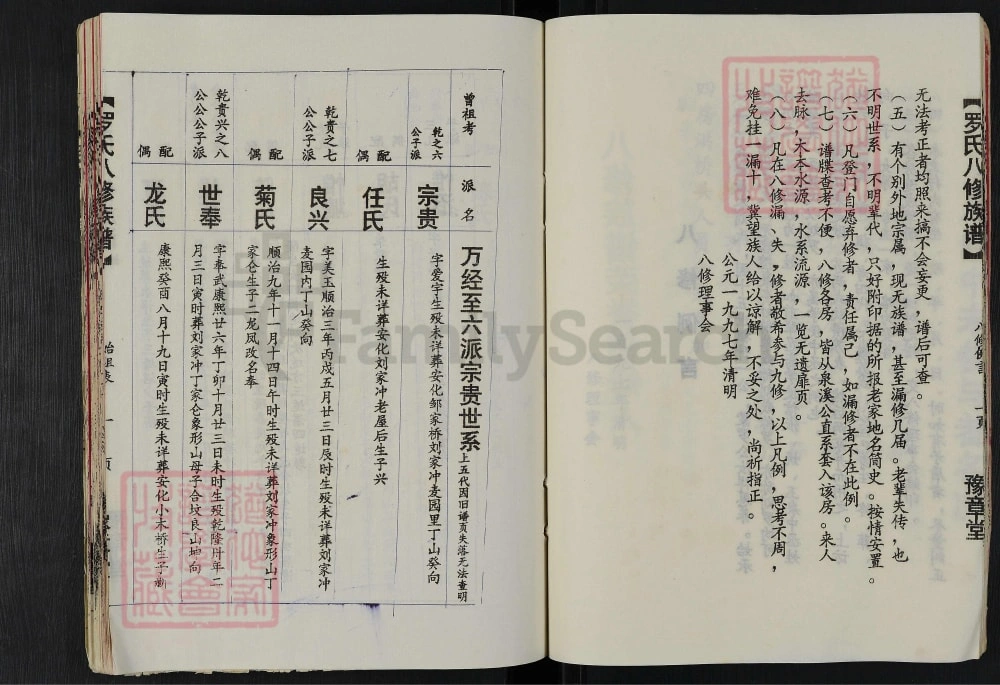 【罗氏八修族谱】
豫章堂
无法考正者均照来搞不会妄吏，谱后可查。
（五）有个别外地宗属，现无族谱，甚至漏修几届。老辈失传，也
不明世系，不明辈代，只好附印据的所报老家地名简史。按情安置。
（六）凡登门自愿弃修者，责任属己，如漏修者不在此例。
（七）谱牒查考不便，八修各房，皆从泉溪公直系套入该房。来人
去脉，木本水源，水系流源，一览无遗扉页。
（八）凡在八修漏、失，修者敬希参与九修，以上凡例，思考不周，
难免挂一漏十，冀望族人给以谅解，不妥之处，尚祈指正。
公元一九九七年清明
八修理事会
曾祖考
派名
万经至六派宗贵世系
上五代因旧谱页失落无法查明
乾之六
公子派
宗贵
字爱宇生殁未详葬安化邹家桥刘家冲麦园里丁山癸向
配
偶
任氏
生殁未详葬安化刘家冲老屋后生子兴
乾贵之七
公公子派
良兴
字美玉顺治三年丙戌五月廿三日辰时生殁未详葬刘家冲
麦园内丁山癸向
配
偶
菊氏
顺治九年十一月十四日午时生殁未详葬刘家冲象形山丁
家仑生子二龙凤改名奉
乾贵兴之八
公公公子派
世奉
字奉武康熙廿六年丁卯十月廿三日未时生殁乾隆卅年二
月三日寅时葬刘家冲丁家仑象形山母子合坟艮山坤向
配
偶
龙氏
康熙癸酉八月十九日寅时生殁未详葬安化小木桥生子
【罗氏八修族谱】
始祖表
一页
FamilySearch